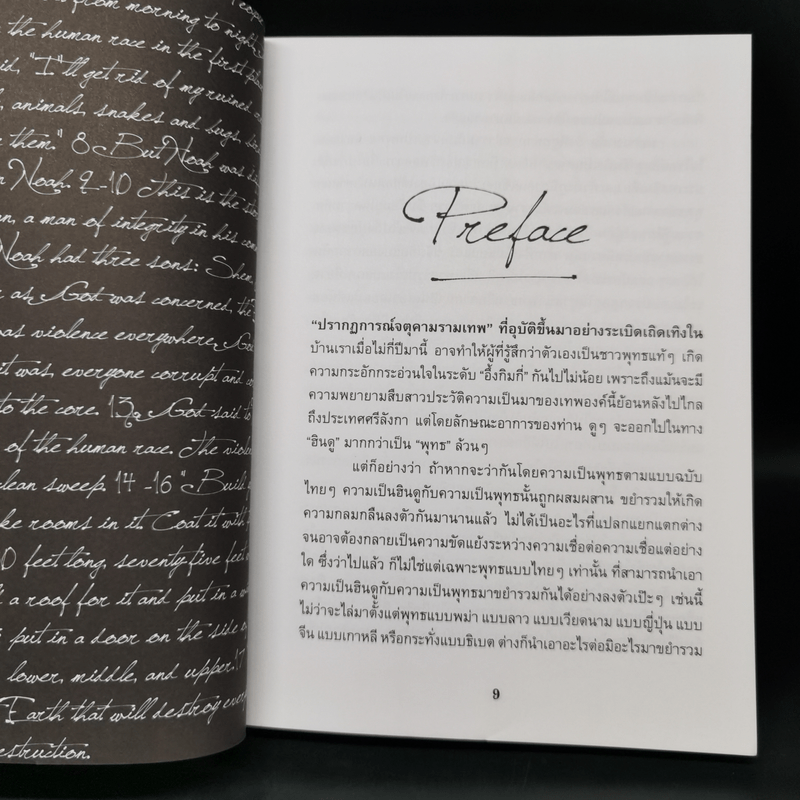 from morning to night
the human race in the first
"I'll get rid of my ruined
animals, snakes and bugs,
them." 8 But Noah was
Noah. 9-10 This is the
a man of integrity in his
Noah had three sons: Shem,
as God was concerned, the
was violence everywhere. God
it was, everyone corrupt and
to the core. 13. God said to
of the human race. The
clean sweep. 14 -16 "Build
rooms in it. Coat it with
feet long, seventy-five feet
a roof for it and put in a
put in a door on the side
lower, middle, and upper. 17
Earth that will destroy
destruction.
Preface
"ปรากฏการณ์จตุคามรามเทพ" ที่อุบัติขึ้นมาอย่างระเบิดเถิดเทิงใน
บ้านเราเมื่อไม่กี่ปีมานี้ อาจทำให้ผู้ที่รู้สึกว่าตัวเองเป็นชาวพุทธแท้ๆ เกิด
ความกระอักกระอ่วนใจในระดับ "อึ้งกิมกี่" กันไปไม่น้อย เพราะถึงแม้นจะมี
ความพยายามสืบสาวประวัติความเป็นมาของเทพองค์นี้ย้อนหลังไปไกล
ถึงประเทศศรีลังกา แต่โดยลักษณะอาการของท่าน ดูๆ จะออกไปในทาง
"ฮินดู" มากกว่าเป็น "พุทธ" ล้วนๆ
แต่ก็อย่างว่า ถ้าหากจะว่ากันโดยความเป็นพุทธตามแบบฉบับ
ไทยๆ ความเป็นฮินดูกับความเป็นพุทธนั้นถูกผสมผสาน ขยำรวมให้เกิด
ความกลมกลืนลงตัวกันมานานแล้ว ไม่ได้เป็นอะไรที่แปลกแยกแตกต่าง
จนอาจต้องกลายเป็นความขัดแย้งระหว่างความเชื่อต่อความเชื่อแต่อย่าง
ใด ซึ่งว่าไปแล้ว ก็ไม่ใช่แต่เฉพาะพุทธแบบไทยๆ เท่านั้น ที่สามารถนำเอา
ความเป็นฮินดูกับความเป็นพุทธมาขยำรวมกันได้อย่างลงตัวเป๊ะๆ เช่นนี้
ไม่ว่าจะไล่มาตั้งแต่พุทธแบบพม่า แบบลาว แบบเวียดนาม แบบญี่ปุ่น แบบ
จีน แบบเกาหลี หรือกระทั่งแบบธิเบต ต่างก็นำเอาอะไรต่อมิอะไรมาขยำรวม
9